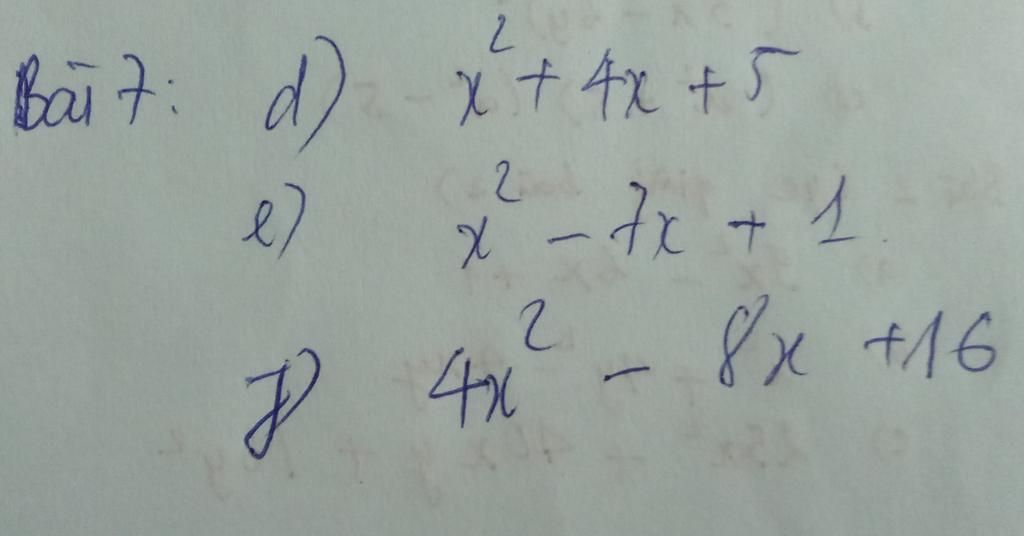 Bài 7: d) x² + 4x + 5
e) x² - 7x + 1
f) 4x² - 8x + 16